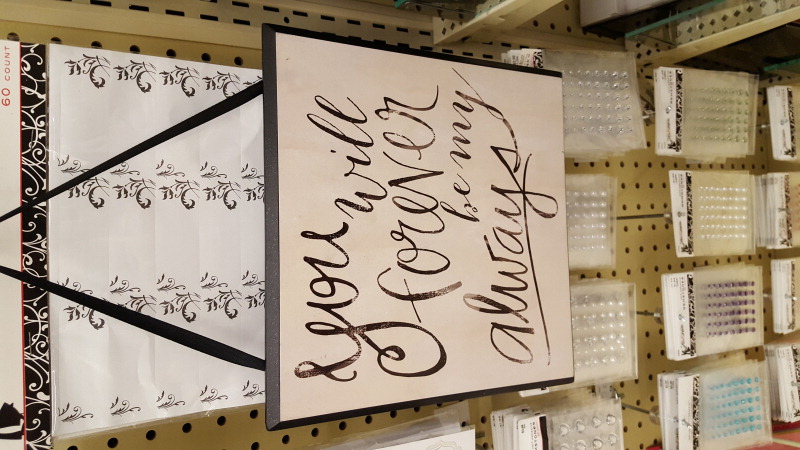 you will
forever
be my
always
60 COUNT